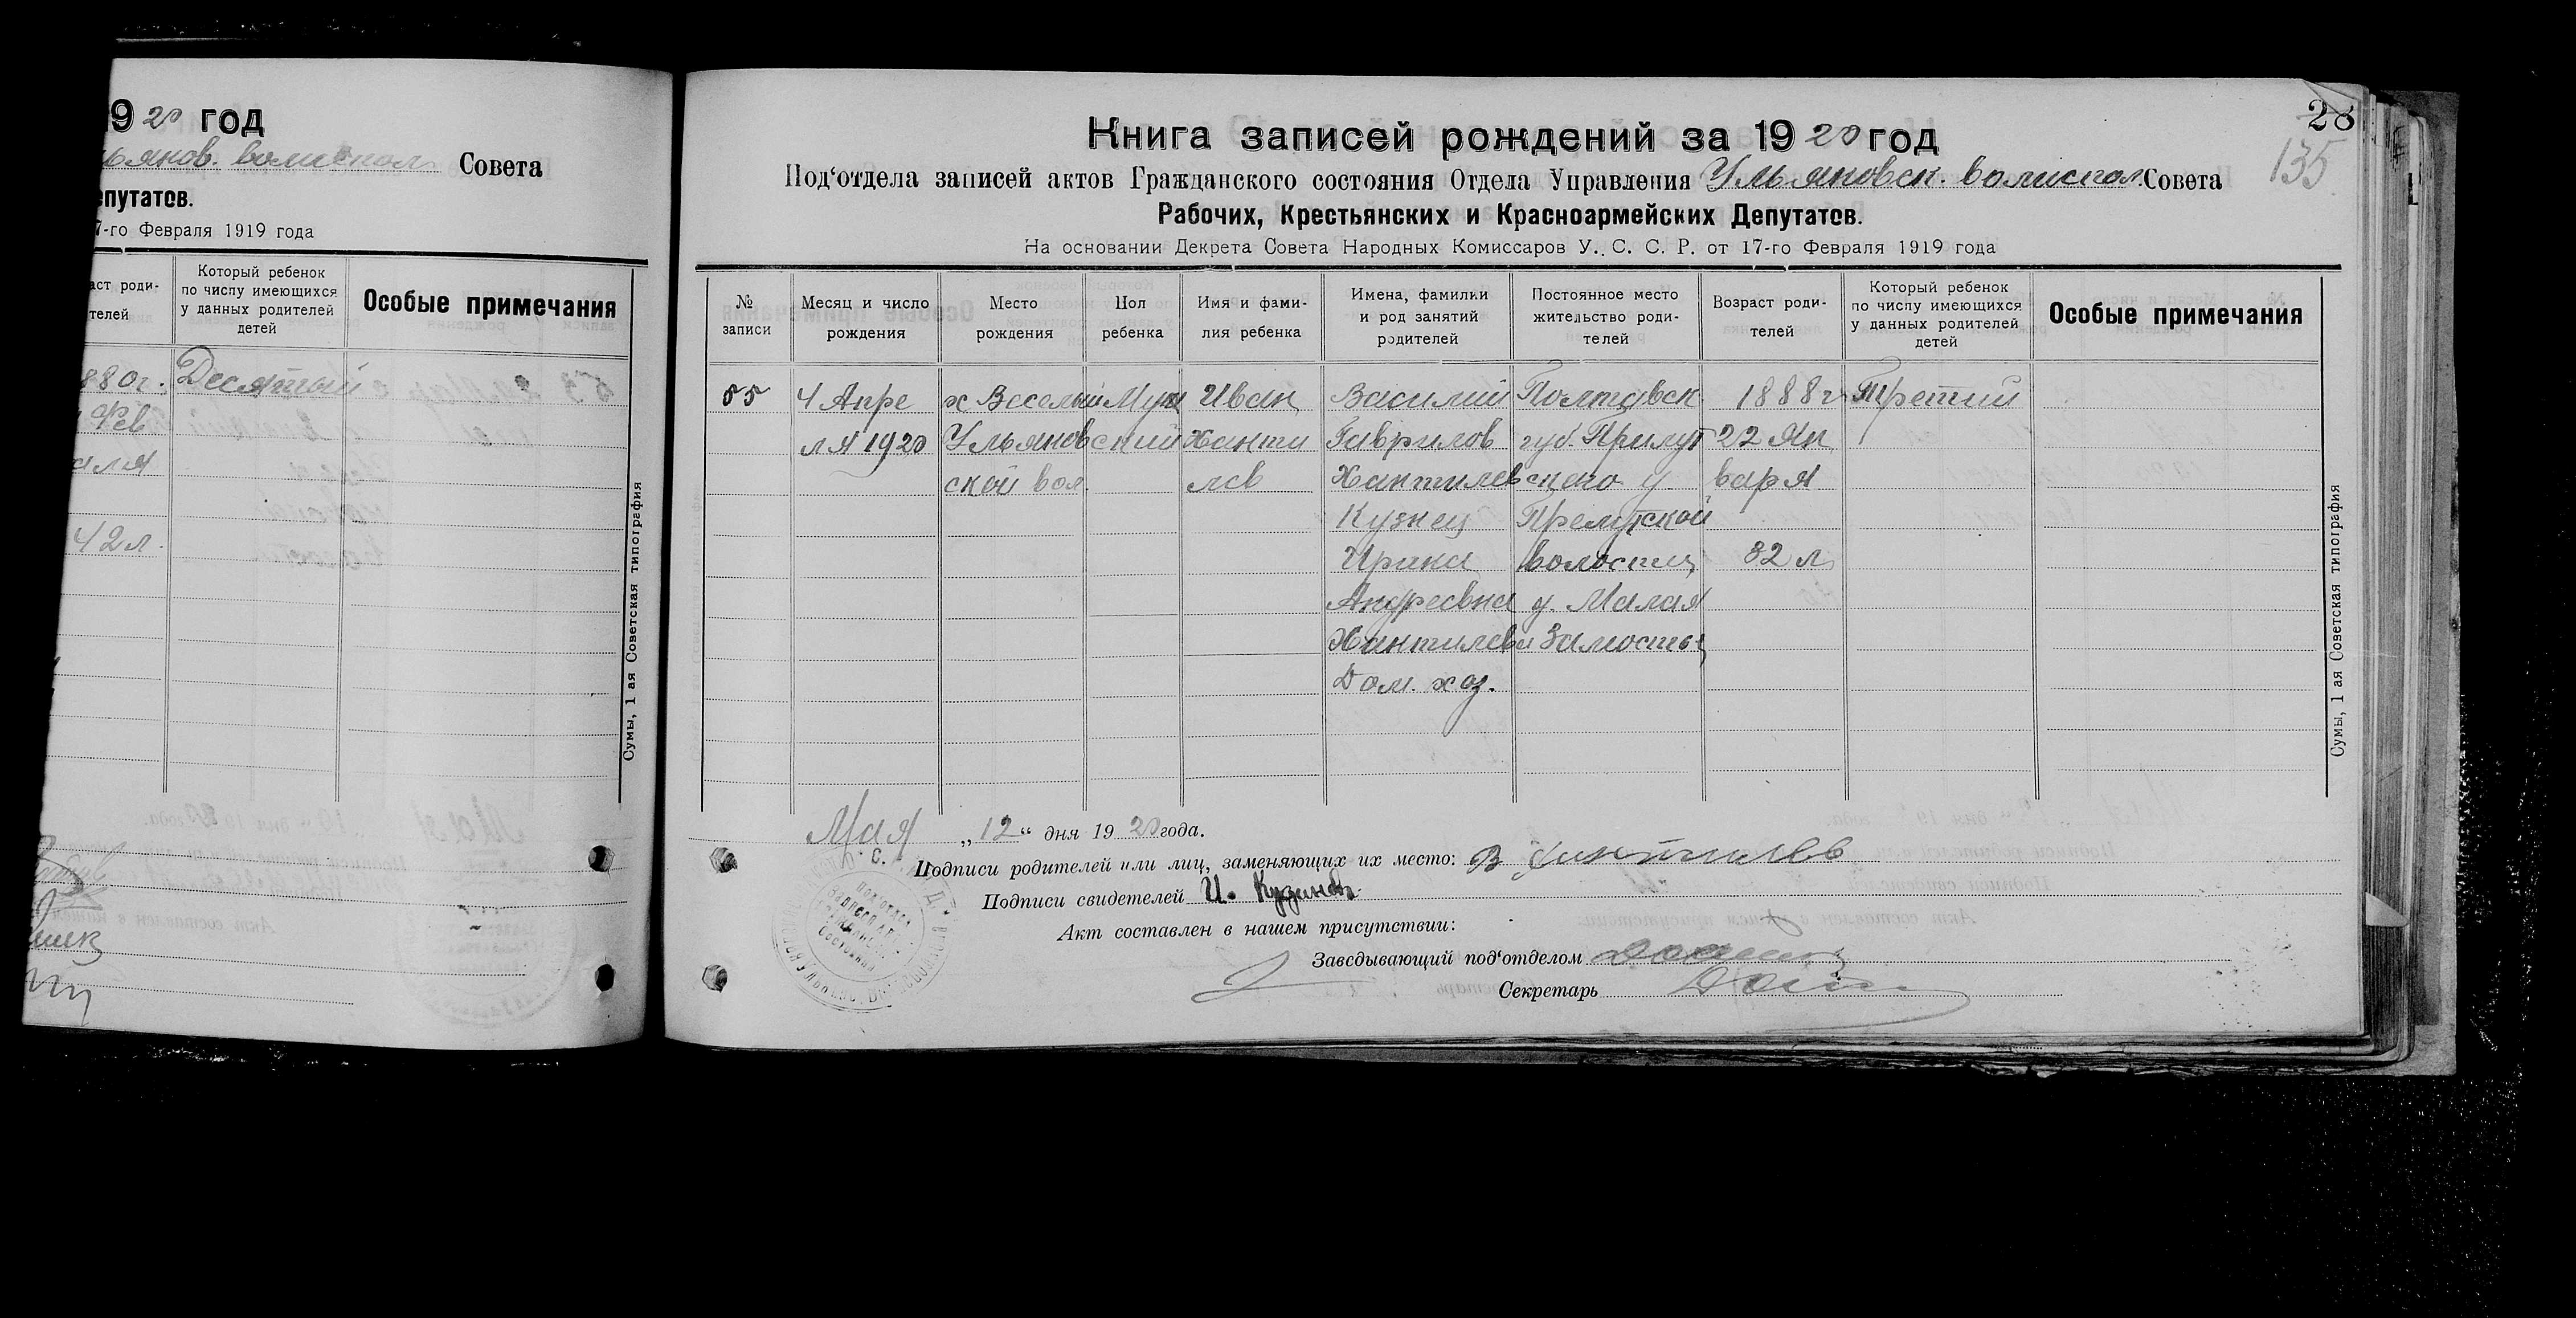 19 20 год
льянов. волиспол. Совета
епутатов.
7-го Февраля 1919 года
аст роди-
телей
Который ребенок
по числу имеющихся
у данных родителей
детей
Особые примечания
880г. Десятый
Фев
аля
42 л.
Сумы, 1 ая Советская типография
28
135
Книга записей рождений за 19 20 год
Под‘отдела записей актов Гражданского состояния Отдела Управления Ульяновск. волиспол. Совета
Рабочих, Крестьянских и Красноармейских Депутатов.
На основании Декрета Совета Народных Комиссаров У. С. С. Р. от 17-го Февраля 1919 года
№
записи
Месяц и число
рождения
Место
рождения
Пол
ребенка
Имя и фами-
лия ребенка
Имена, фамилии
и род занятий
родителей
Постоянное место
жительство роди-
телей
Возраст роди-
телей
Который ребенок
по числу имеющихся
у данных родителей
детей
Особые примечания
55 4 Апре х Веселый Муж Иван Василий Полтавск 1888г Третий
ля 1920 Ульянов ский Ханти Гаврилов губ. Прилут 22 Ян
ской вол. лев Хантилев ского у. варя
Кузнец Прилутской
Ирина волости 32 л
Андреевна д. Малая
Хантилева Замостье
Дом. хоз.
Сумы, 1 ая Советская типография
Мая „12“ дня 19 20 года.
Подписи родителей или лиц, заменяющих их место: В Хантилев
Подписи свидетелей И. Кузинов
Акт составлен в нашем присутствии:
Заведывающий под‘отделом
Секретарь